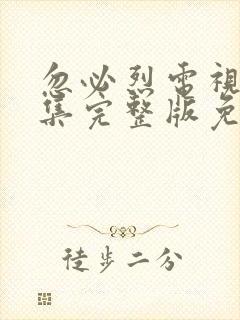 忽必烈電視
集完整版免
徒步二分